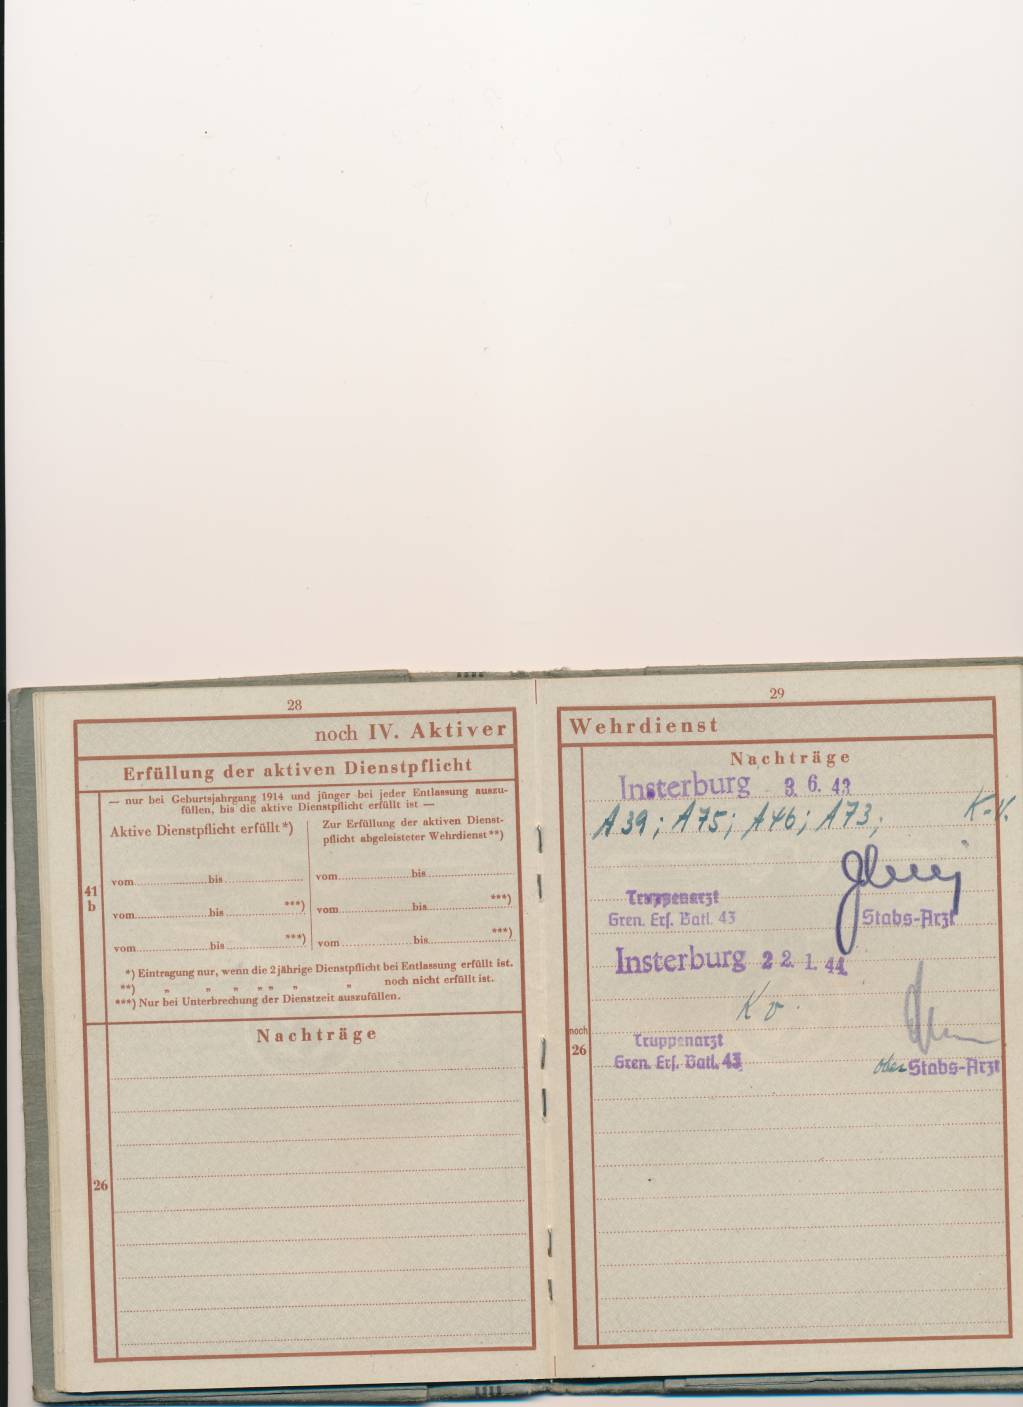 28
noch IV. Aktiver
Erfüllung der aktiven Dienstpflicht
— nur bei Geburtsjahrgang 1914 und jünger bei jeder Entlassung auszu-
füllen, bis die aktive Dienstpflicht erfüllt ist —
Aktive Dienstpflicht erfüllt*)
Zur Erfüllung der aktiven Dienst-
pflicht abgeleisteter Wehrdienst**)
41
b
vom bis
vom bis
***)
***)
vom bis
vom bis
***)
***)
vom bis
vom bis
*) Eintragung nur, wenn die 2jährige Dienstpflicht bei Entlassung erfüllt ist.
**) „ „ „ „ „ „ „ noch nicht erfüllt ist.
***) Nur bei Unterbrechung der Dienstzeit auszufüllen.
Nachträge
26
29
Wehrdienst
Nachträge
Insterburg 3. 6. 43
A39; A75; A46; A73; K.v.
Truppenarzt
Gren. Ers. Batl. 43
Stabs-Arzt
Insterburg 22. 1. 44
Kv.
noch
26
Truppenarzt
Gren. Ers. Batl. 43
ober Stabs-Arzt